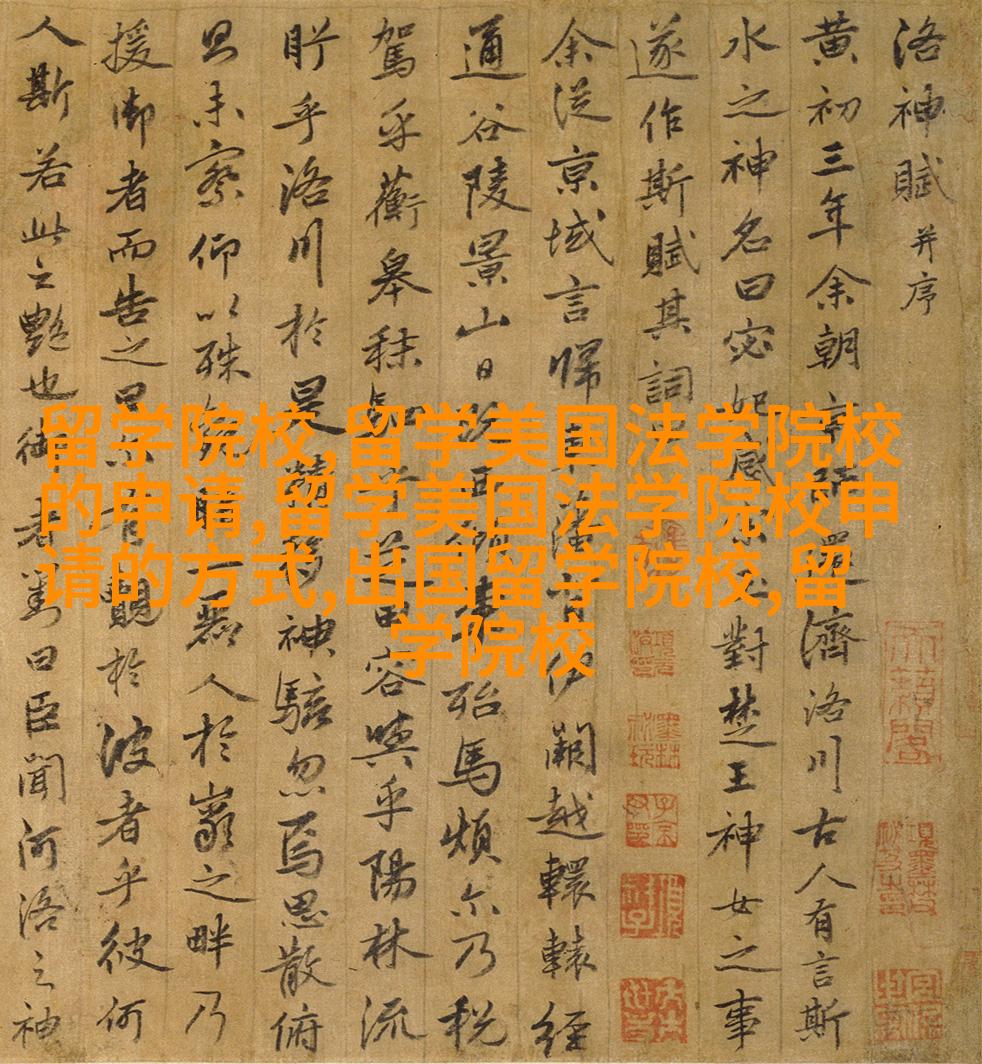 洛神賦并序
黄初三年余朝京師還濟洛川古人有言斯
水之神名曰宓妃感宋玉對楚王神女之事
遂作斯賦其詞曰
余従京域言歸東藩背伊闕越轘轅經
通谷陵景山日既西傾車殆馬煩尒乃税
駕乎蘅皋秣駟乎芝田容與乎陽林流
眄乎洛川於是精移神駭忽焉思散俯
則未察仰以殊觀睹一麗人於巖之畔乃
援御者而告之曰尒有覿於彼者乎彼何
人斯若此之艷也御者對曰臣聞河洛之神
留学院校,留学美国法学院校
的申请,留学美国法学院校申
请的方式,出国留学院校,留
学院校